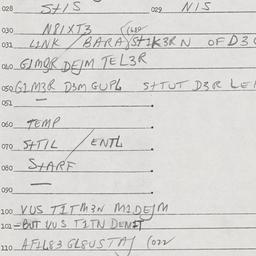 028 STIS 029 NIS
030 N8IXT3
031 LINK / BARA/STIK3R N OFD3
040 GIM3R DEJM TEL3R
050 GIM3R D3M GUPL STTUT D3R LE
051 —
060 TEMP
070 STTIL / ENTL
080 STARF
090 —
100 VUS TITM3N MIDEJM
101 -BUT VUS TITN DENIT
110 AFIL83 GL8USTAJ (022